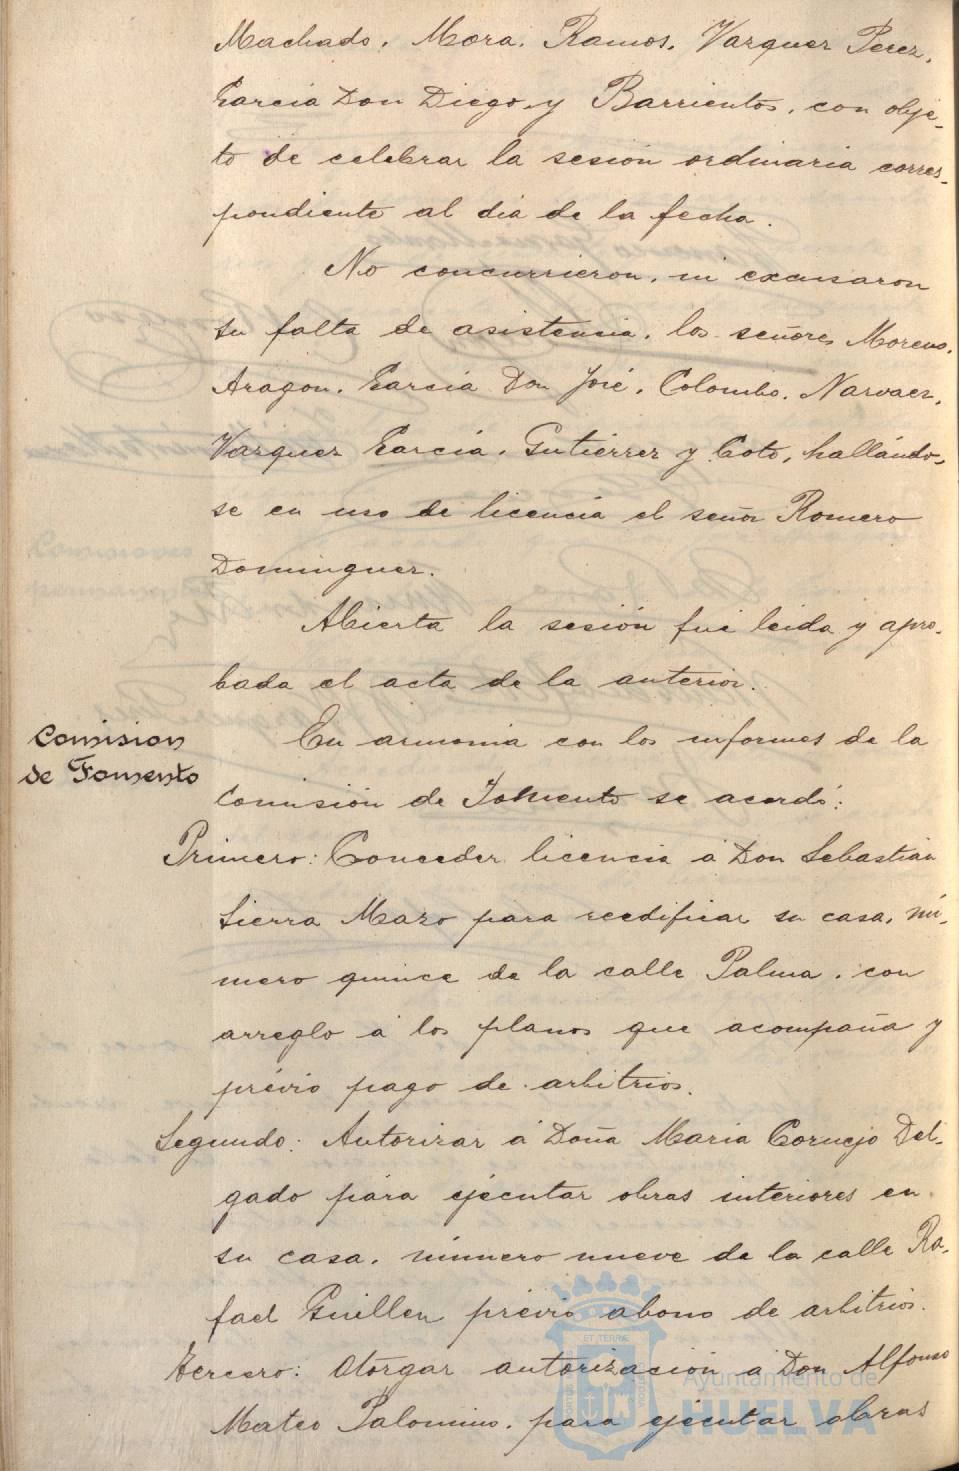 Machado, Mora, Ramos, Vazquez Perez,
Garcia Don Diego, y Barrientos, con obje-
to de celebrar la sesión ordinaria corres-
pondiente al dia de la fecha.
No concurrieron, ni excusaron
su falta de asistencia, los señores Moreno,
Aragon, Garcia Don José, Colombo, Narvaez,
Vazquez Garcia, Gutiérrez y Coto, hallándo-
se en uso de licencia el señor Romero
Dominguez.
Abierta la sesión fué leida y apro-
bada el acta de la anterior.
Comision
de Fomento
En armonia con los informes de la
Comisión de Fomento se acordó:
Primero: Conceder licencia á Don Sebastián
Sierra Mazo para reedificar su casa, nú-
mero quince de la calle Palma, con
arreglo á los planos que acompaña y
prévio pago de arbitrios.
Segundo: Autorizar á Doña Maria Cornejo Del-
gado para ejecutar obras interiores en
su casa, número nueve de la calle Ra-
fael Guillen prévio abono de arbitrios.
Tercero: Otorgar autorización á Don Alfonso
Mateo Palomino, para ejecutar obras
ET TERRÆ
Ayuntamiento de
HUELVA